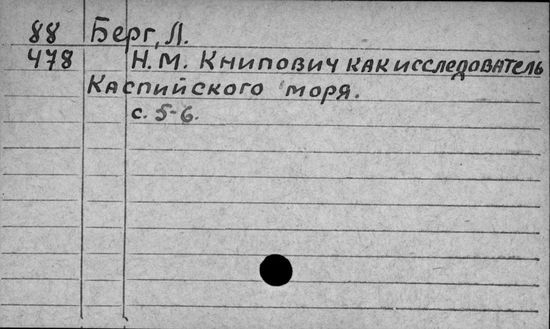 88 Берг, Л.
478 Н. М. Книпович как исследователь
Каспийского моря.
с. 5-6.